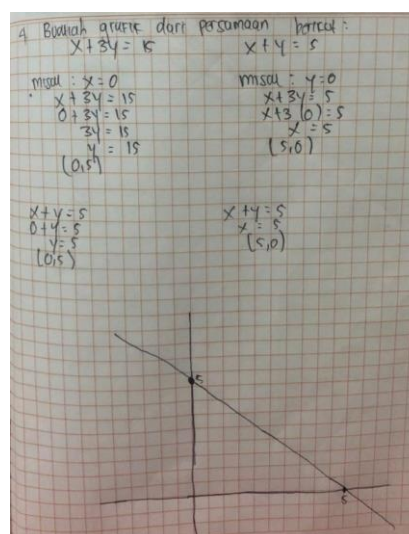 4 Buatlah grafik dari persamaan berikut :
x + 3y = 15
x + y = 5
misal : x = 0
x + 3y = 15
0 + 3y = 15
3y = 15
y = 15
(0,5)
misal : y = 0
x + 3y = 5
x + 3 (0) = 5
x = 5
(5,0)
x + y = 5
0 + y = 5
y = 5
(0,5)
x + y = 5
x = 5
(5,0)
5
5